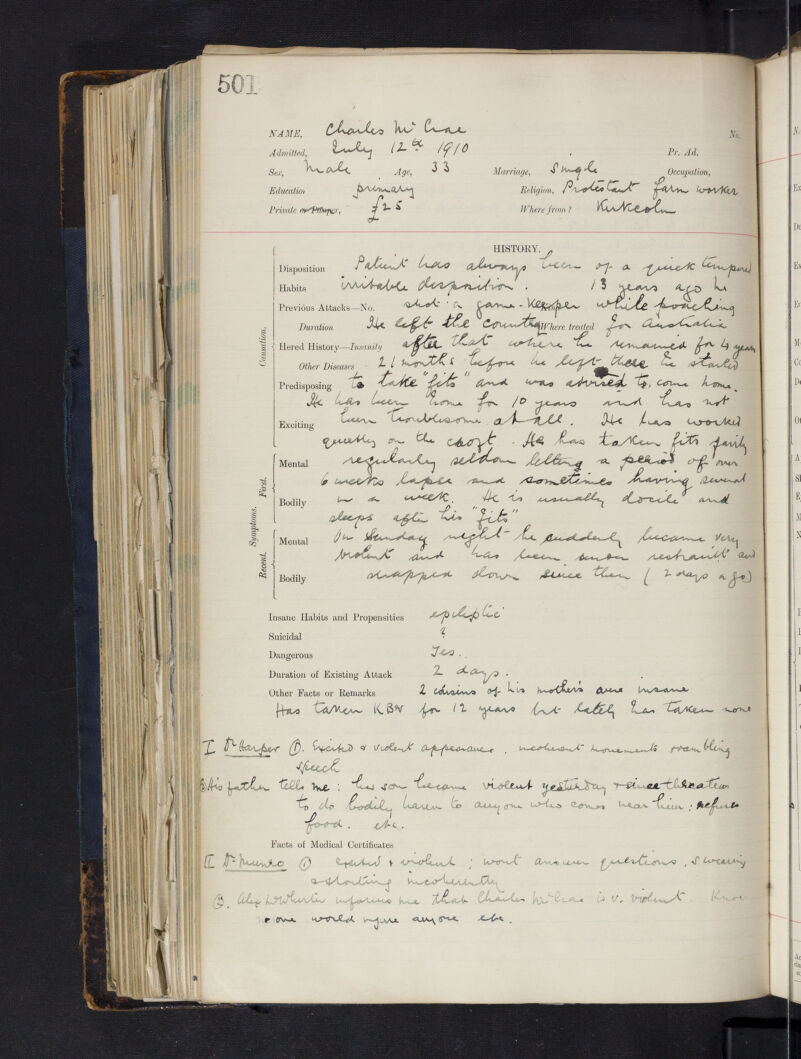 501
NAME, Charles McCrae No.
Admitted, July 12th 1910 Pr. Ad.
Sex, Male Age, 33 Marriage, Single Occupation,
Education primary Religion, Protestant farm worker
Private or Pauper, £25 Where from? Kirkcolm
HISTORY.
Disposition Patient has always been of a quick tempered
Habits irritable disposition. 13 years ago he
Previous Attacks—No. shot a game-keeper while poaching
Duration He left the country Where treated for Australia
Hered History—Insanity after that where he remained for 4 years
Other Diseases 21 months before he left there he started
Predisposing to take "fits" and was advised to come home.
He has been home for 10 years and has not
Exciting been troublesome at all. He has worked
quietly on the croft. He has taken fits fairly
Mental regularly seldom letting a period of over
6 weeks lapse and sometimes having several
Bodily in a week. He is usually docile and
sleeps after his "fits"
Mental On Sunday night he suddenly became very
violent and has been under restraint and
Bodily strapped down since then (2 days ago)
Causation.
Symptoms. First.
Recent.
Insane Habits and Propensities epileptic
Suicidal ?
Dangerous Yes.
Duration of Existing Attack 2 days.
Other Facts or Remarks 2 cousins of his mother's were insane
Has taken KBr for 12 years but lately has taken none
I Dr Harper ①. Excited & violent appearance, incoherent movements rambling
speech
② His father tells me: his son became violent yesterday & since threatens
to do bodily harm to anyone who comes near him; refuses
food. etc.
Facts of Medical Certificates
II Dr Munro ① excited & violent; wont answer questions, swearing
& shouting incoherently
②. Alex McWhirter informs me that Charles McCrae is v. violent.
one would injure anyone etc.